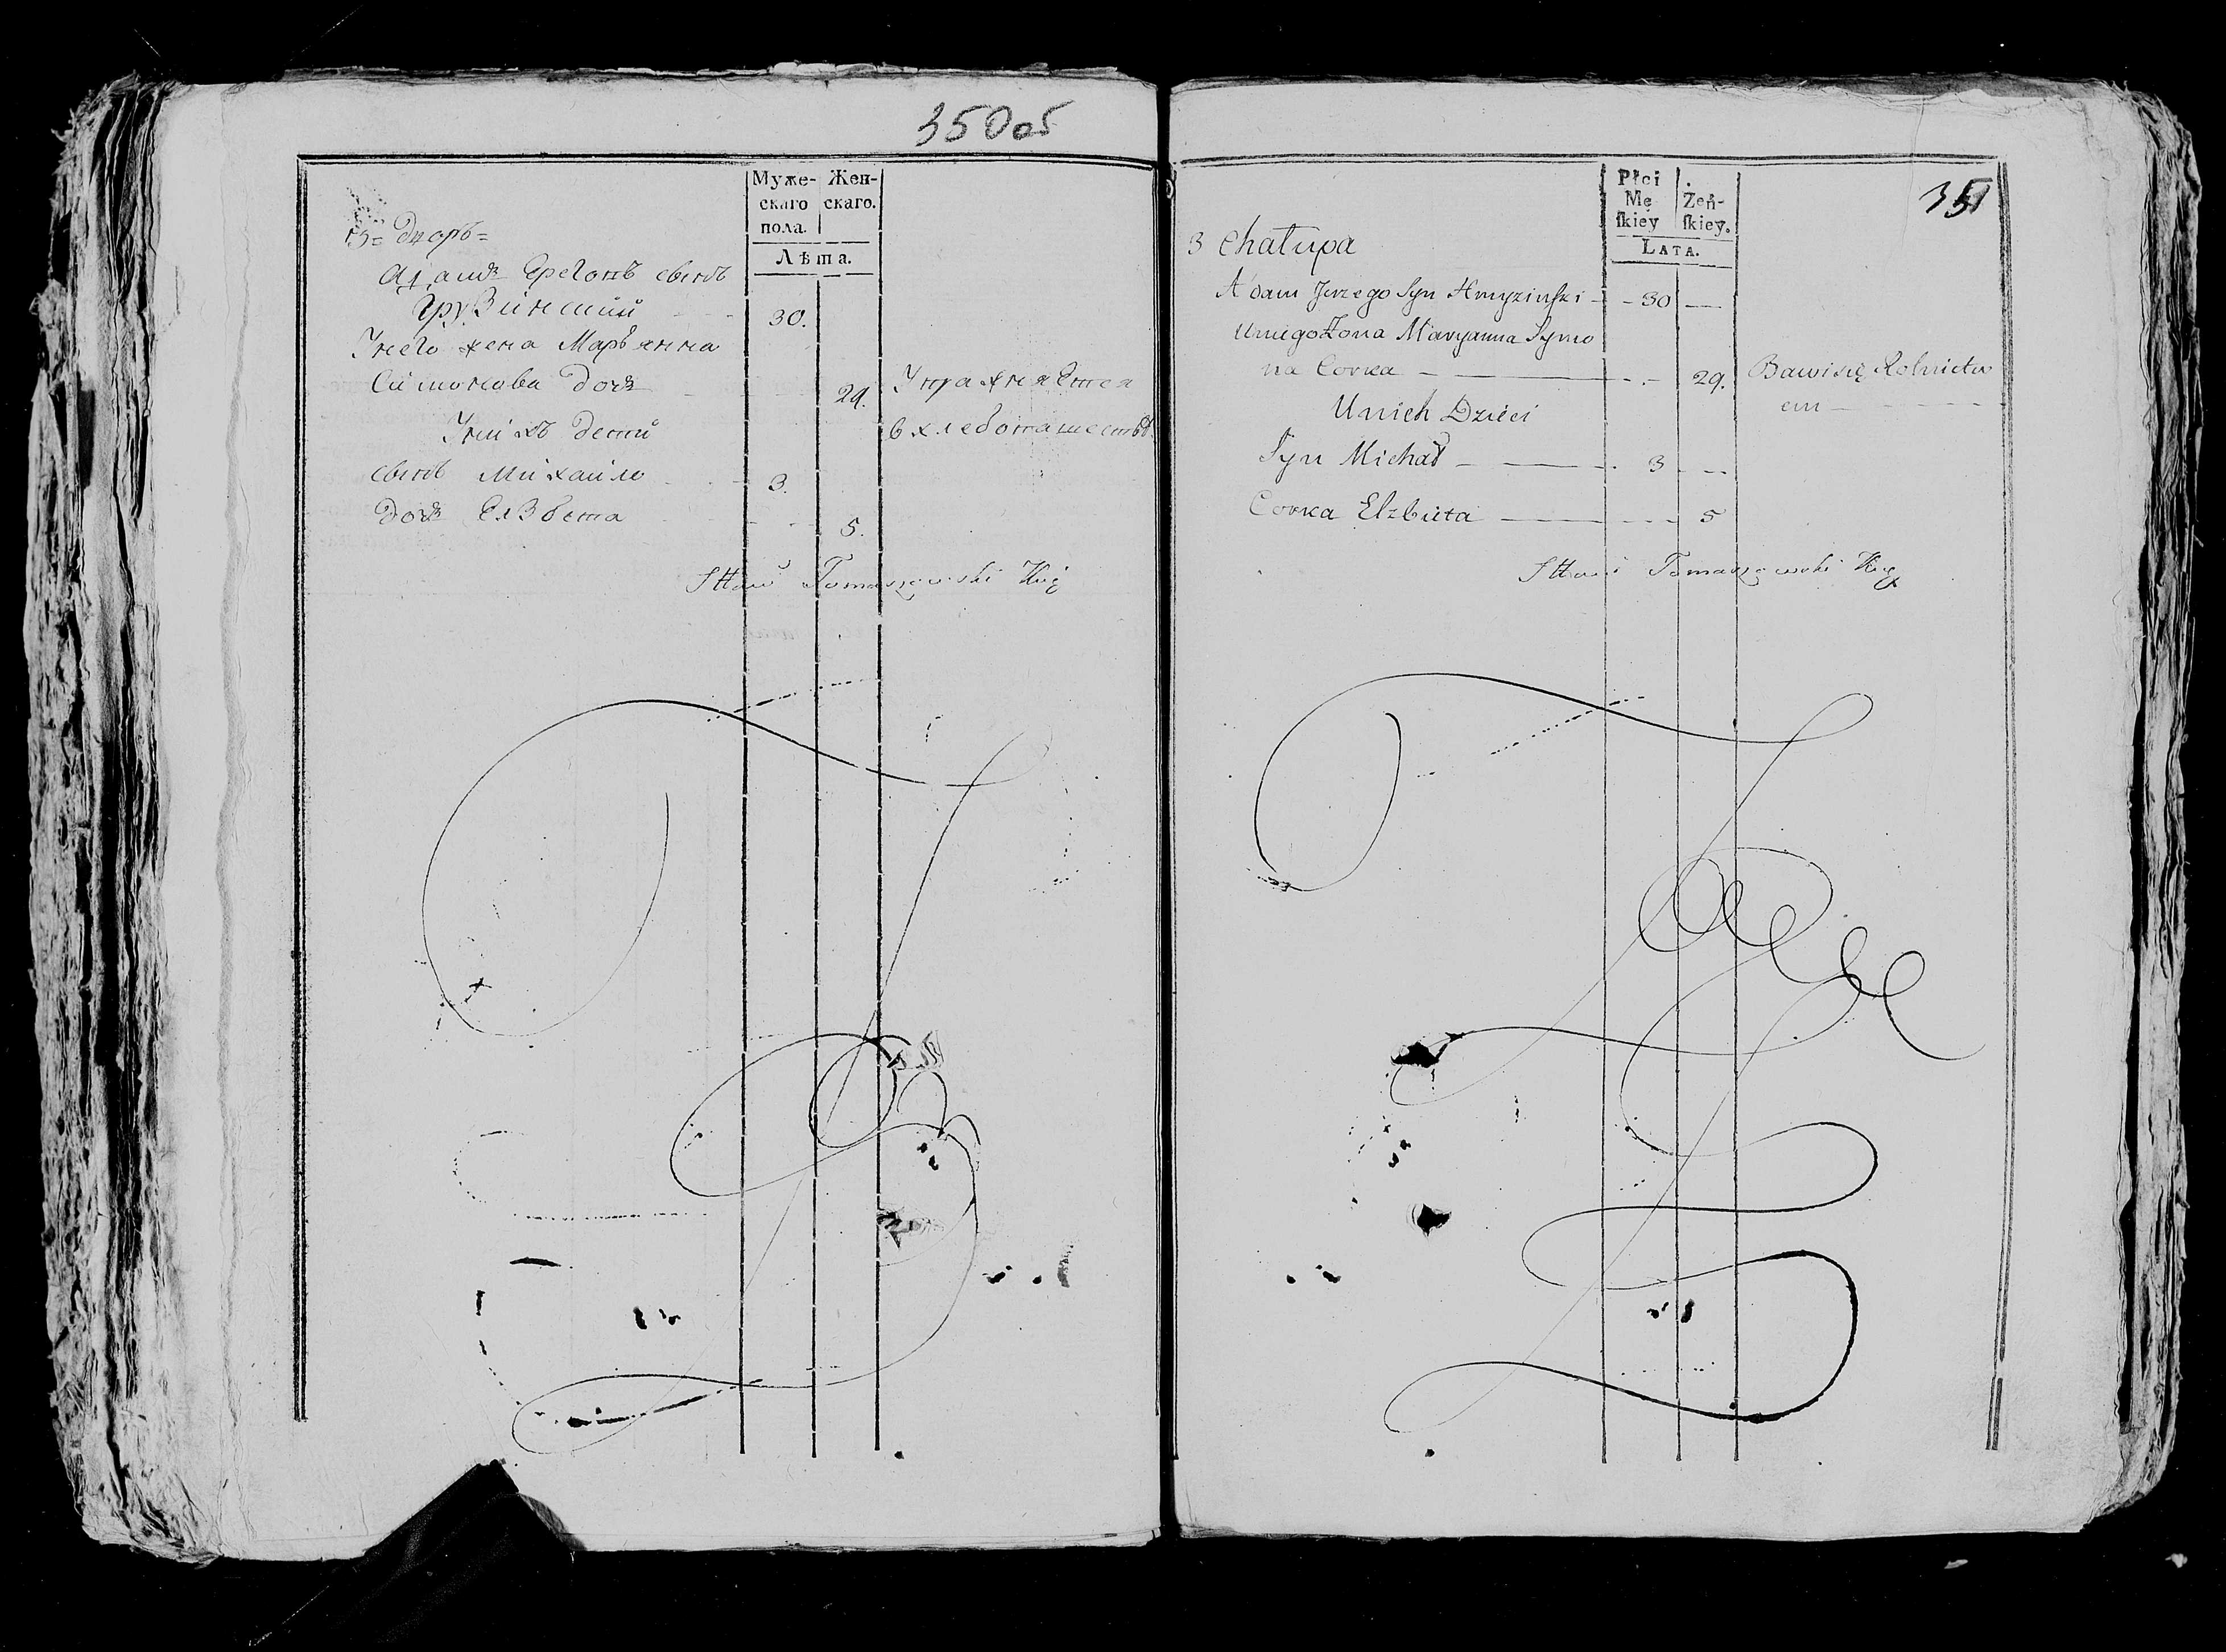 350об
Муже-
скаго
пола.
Жен-
скаго.
Лѣта.
3= Дворъ=
Адамъ Ереговъ сынъ
30.
Унего жена Марьянна
Симонова дочь
29.
Упражняется
в хлебопашествѣ.
Унихъ дети
сынъ Михайло
3.
дочь Елзбета
5.
Tomaszewski
351
Płci
Mę
ſkiey
Żeń-
ſkiey.
LATA.
3 Chałupa
Adam Jerzego Syn
30
Uniego Żona Maryanna Symo
na Corka
29.
Bawisię Rolnictw
em
Unich Dzieci
Syn Michał
3
Corka Elzbieta
5
Tomaszewski